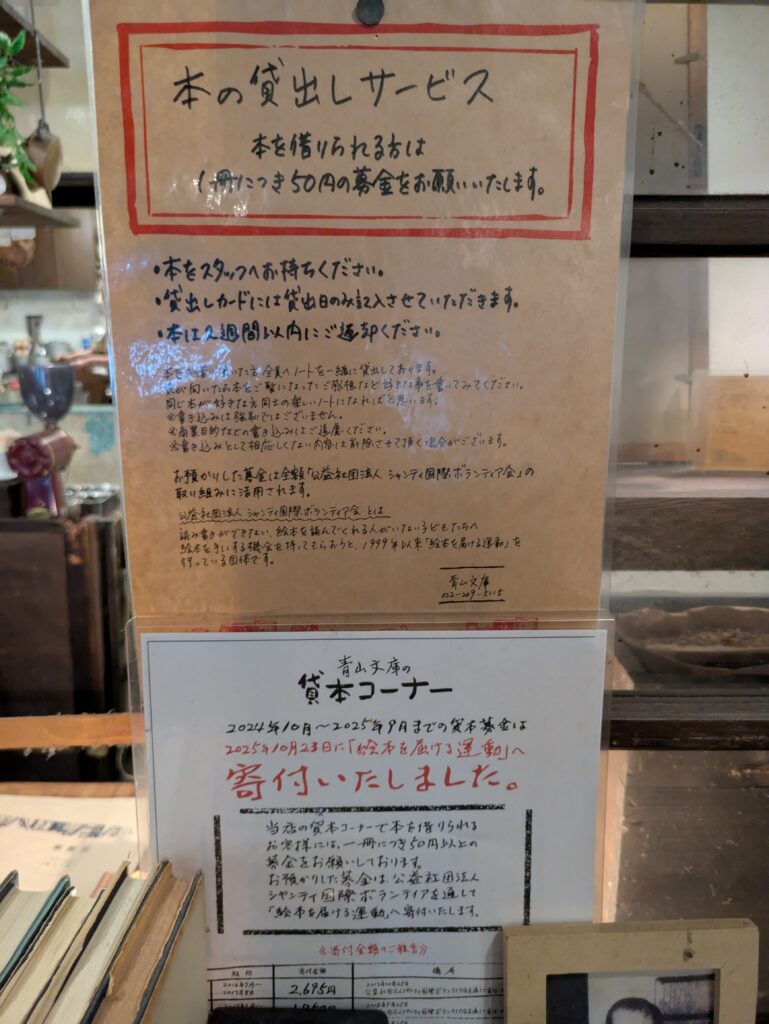 本の貸出しサービス
本を借りられる方は
1冊につき50円の募金をお願いいたします。
・本をスタッフへお持ちください。
・貸出しカードには貸出日のみ記入させていただきます。
・本は2週間以内にご返却ください。
全員へノートを一緒に貸出しております。
が向いたら本をご覧になったご感想など好きな事を書いてみてください。
同じ本が好きな方同士の楽しいノートになればと思います。
※書き込みは強制ではございません。
※商業目的などの書き込みはご遠慮ください。
※書き込みとして相応しくない内容は削除させて頂く場合がございます。
お預かりした募金は全額「公益社団法人 シャンティ国際ボランティア会」の
取り組みに活用されます。
公益社団法人 シャンティ国際ボランティア会 とは
読み書きができない、絵本を読んでくれる人がいない子どもたちへ
絵本を手にする機会を持ってもらおうと、1999年以来「絵本を届ける運動」を
行っている団体です。
青山文庫
052-209-5115
青山文庫の
貸本コーナー
2024年10月〜2025年9月までの貸本募金は
2025年10月23日に「絵本を届ける運動」へ
寄付いたしました。
当店の貸本コーナーで本を借りられる
お客様には、一冊につき50円以上の
募金をお願いしております。
お預かりした募金は、公益社団法人
シャンティ国際ボランティアを通して
「絵本を届ける運動」へ寄付いたします。
《寄付金額のご報告》
期間 寄付金額 備考
2,695円